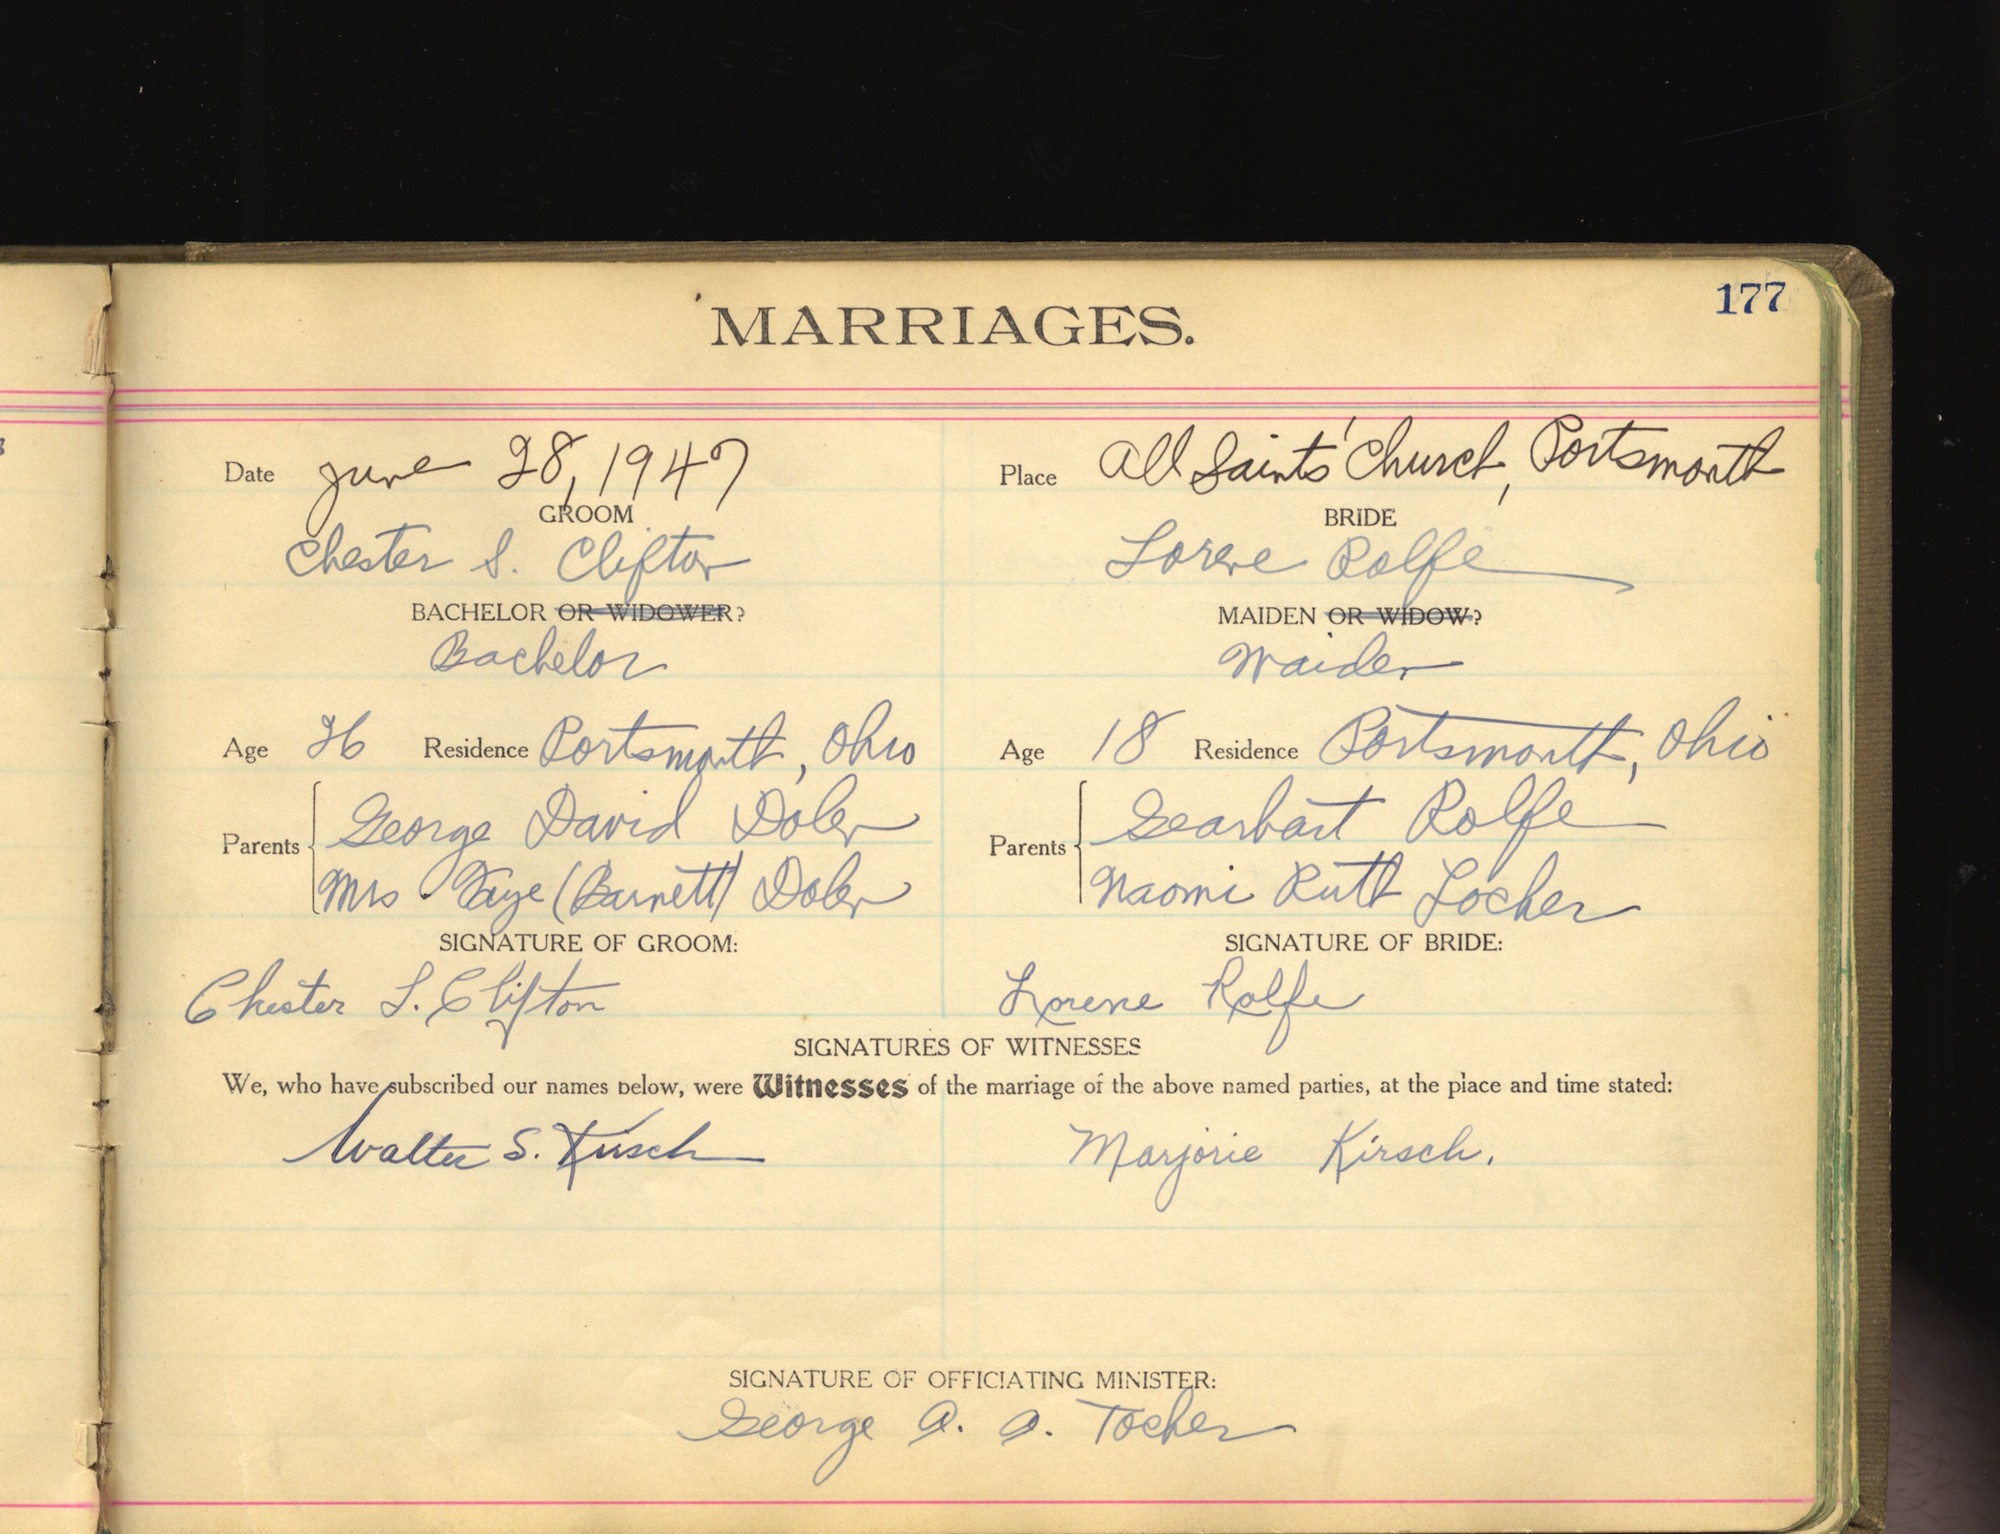 177
MARRIAGES.
Date June 28, 1947 Place All Saints' Church, Portsmouth
GROOM BRIDE
Chester S. Clifton Lorene Rolfe
BACHELOR OR WIDOWER? MAIDEN OR WIDOW?
Bachelor Maiden
Age 26 Residence Portsmouth, Ohio Age 18 Residence Portsmouth, Ohio
Parents George David Doler Parents Gearhart Rolfe
Mrs. Faye (Barnett) Doler Naomi Ruth Locher
SIGNATURE OF GROOM: SIGNATURE OF BRIDE:
Chester S. Clifton Lorene Rolfe
SIGNATURES OF WITNESSES
We, who have subscribed our names below, were Witnesses of the marriage of the above named parties, at the place and time stated:
Walter S. Kirsch Marjorie Kirsch.
SIGNATURE OF OFFICIATING MINISTER:
George A. A. Tocher